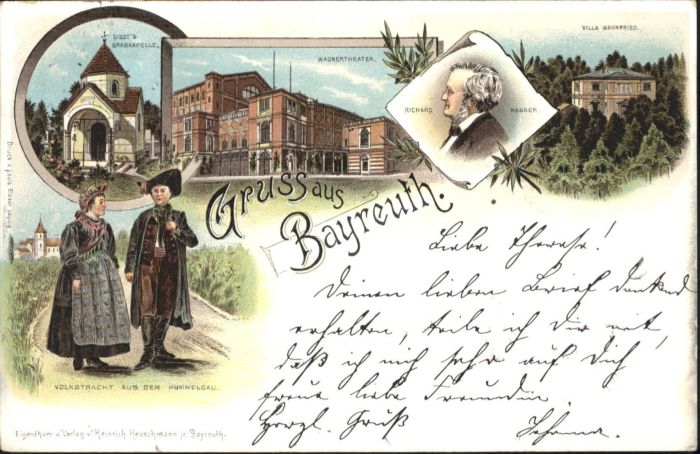 LISZT'S
GRABKAPELLE.
WAGNERTHEATER.
VILLA WAHNFRIED.
RICHARD WAGNER.
Gruss aus
Bayreuth.
Liebe Therese!
Deinen lieben Brief dankend
erhalten, teile ich Dir mit,
daß ich mich sehr auf Dich
freue liebe Freundin.
Herzl. Gruß
Johanna.
VOLKSTRACHT AUS DEM HUMMELGAU.
Eigenthum u. Verlag v. Heinrich Heuschmann jr. Bayreuth.
Druck v. Leipzig